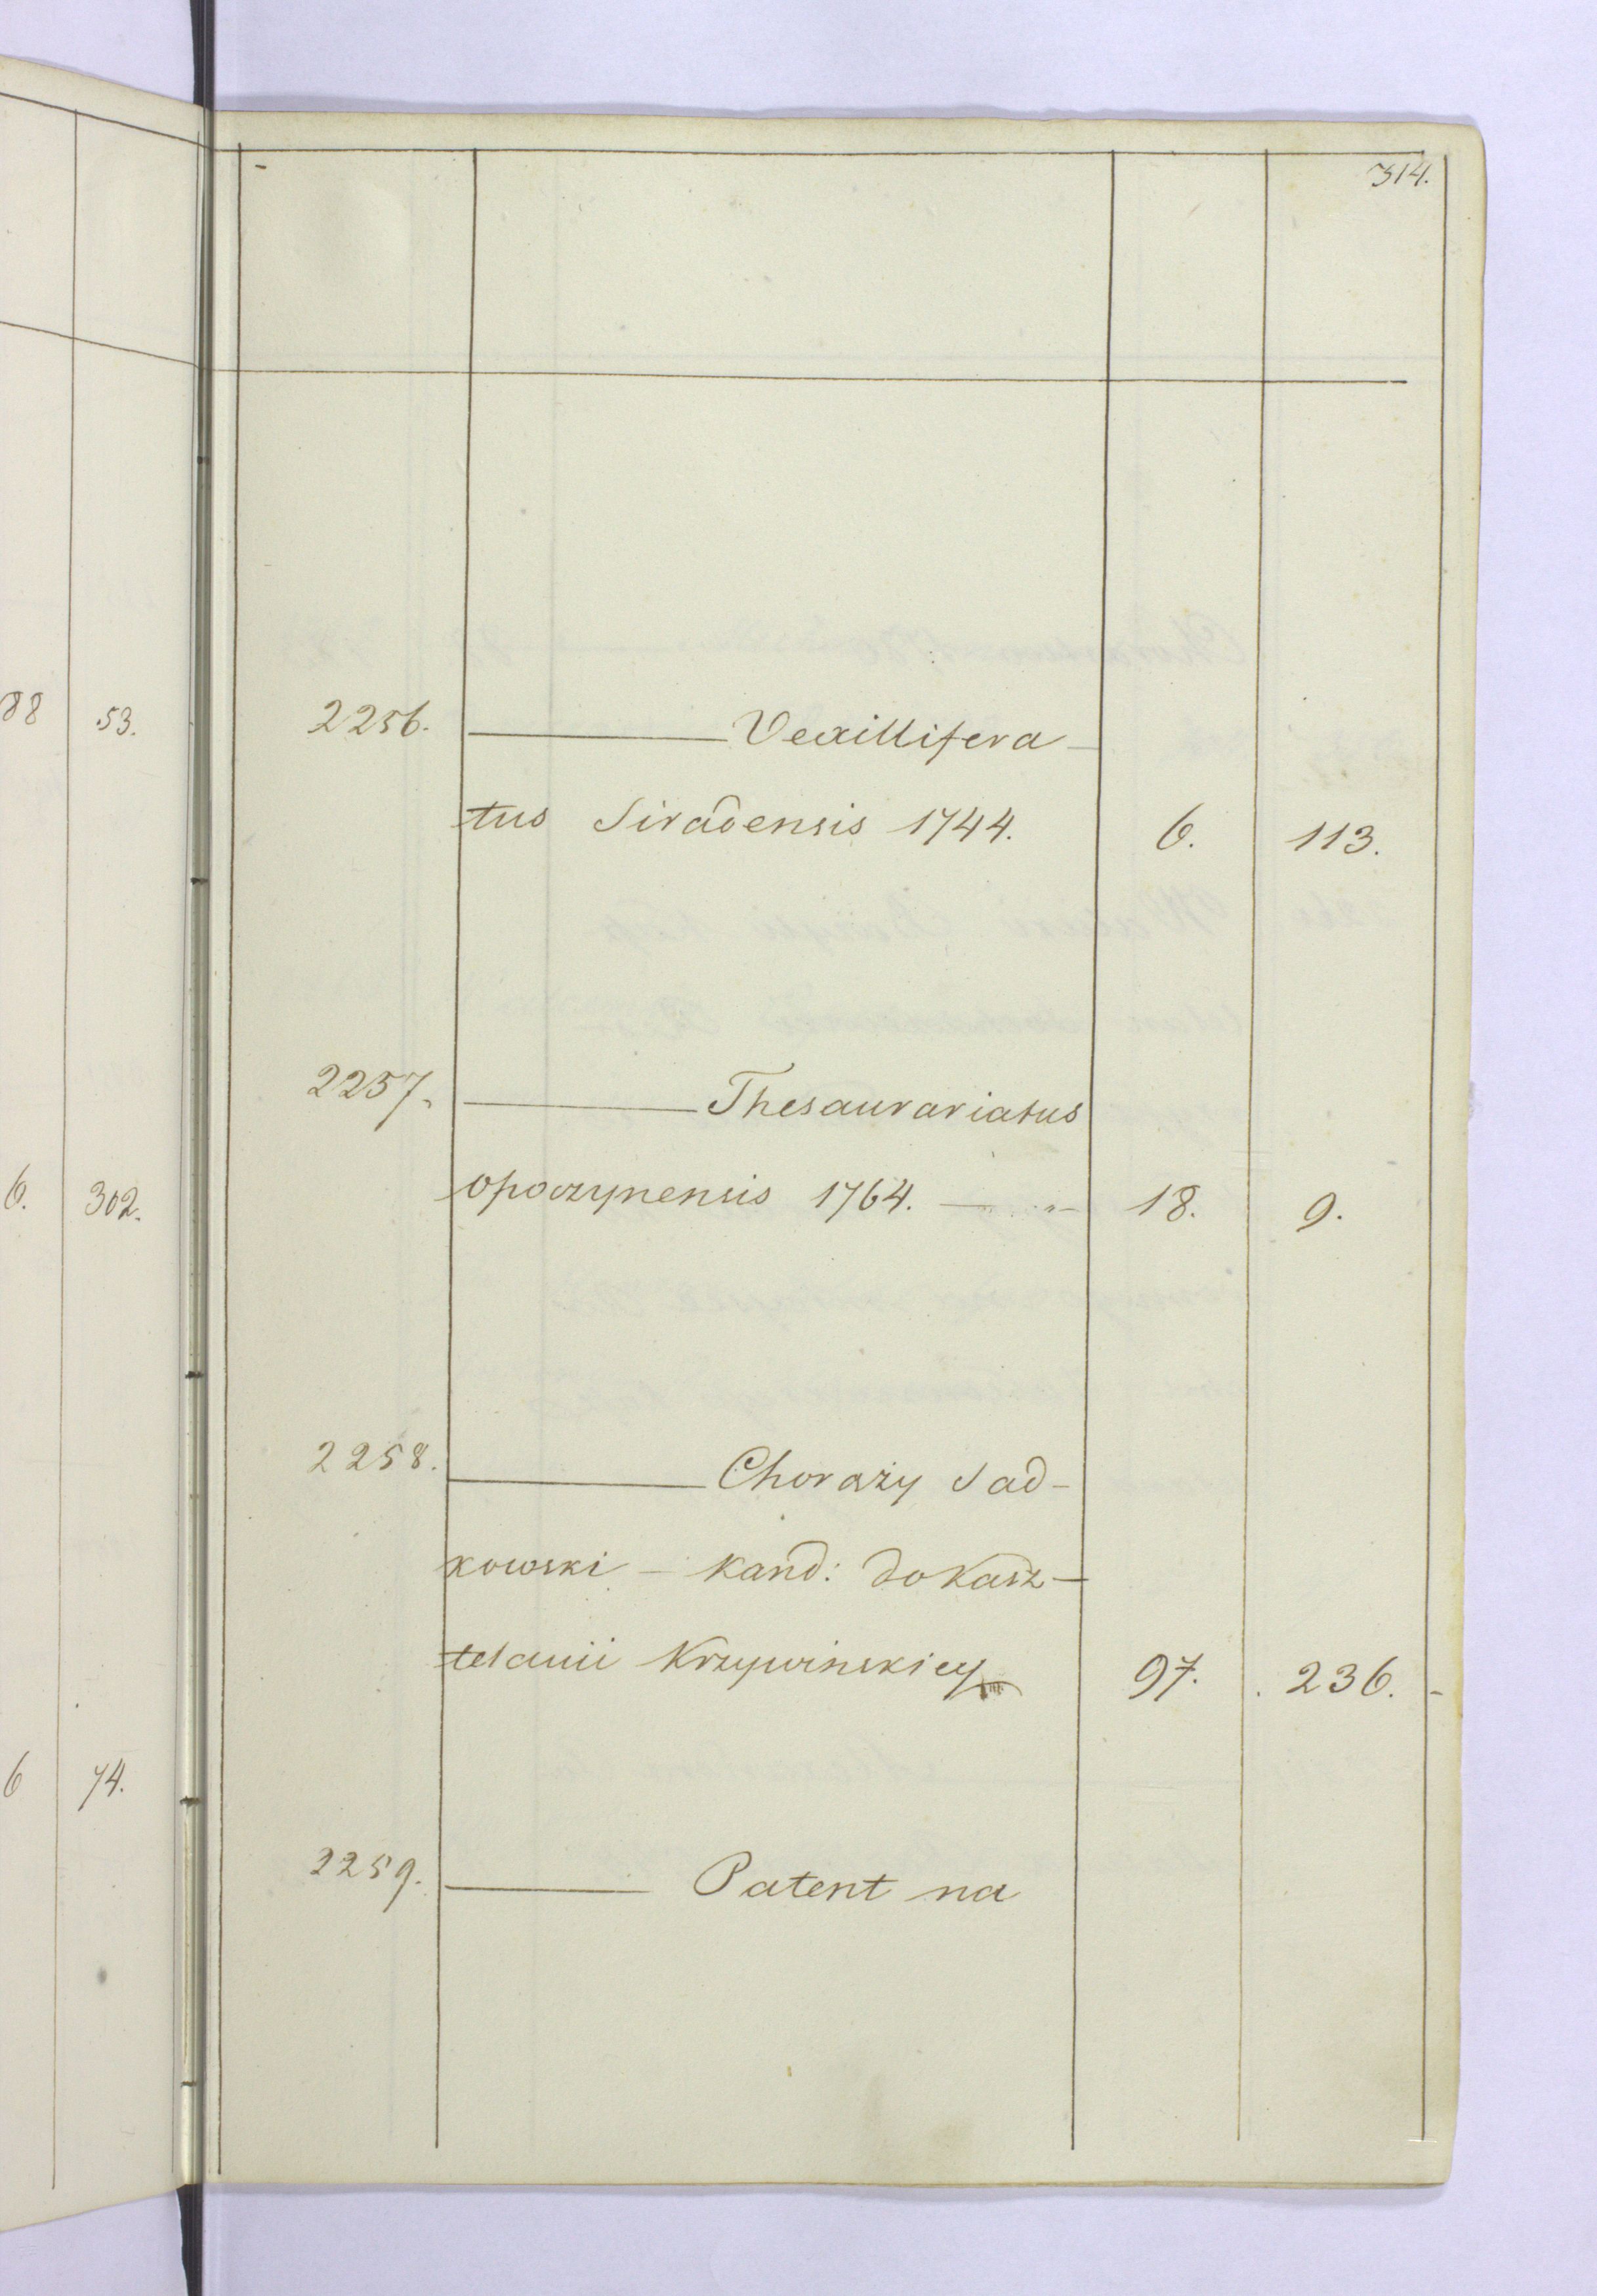 314.
88 53.
2256. ——— Vexillifera-
tus Siradensis 1744. 6. 113.
2257. ——— Thesaurariatus
opoczynensis 1764. — „— 18. 9.
6. 302.
2258. ——— Chorąży Sad-
kowski — kand: do Kasz-
telanii Krzywinskiey 97. 236.
6 74.
2259. ——— Patent na